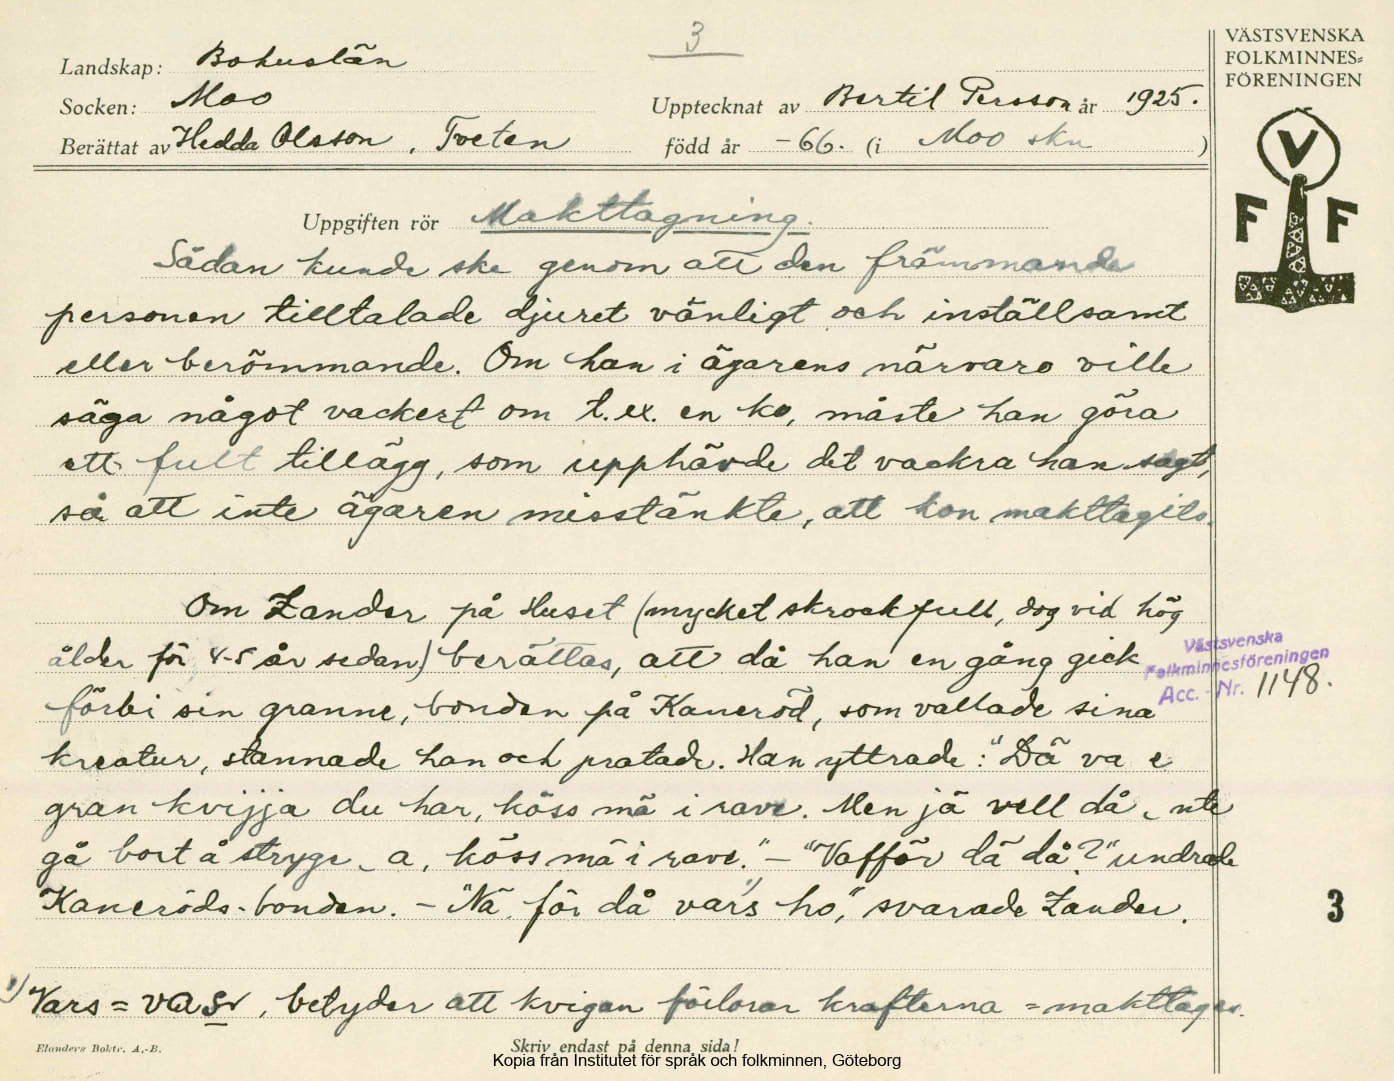 3
VÄSTSVENSKA
FOLKMINNES=
FÖRENINGEN
V
F F
Landskap: Bohuslän
Socken: Moo
Upptecknat av Bertil Persson år 1925.
Berättat av Hedda Olsson, Tveten
född år -66. (i Moo skn )
Uppgiften rör Makttagning.
Sådan kunde ske genom att den främmande
personen tilltalade djuret vänligt och inställsamt
eller berömmande. Om han i ägarens närvaro ville
säga något vackert om t.ex. en ko, måste han göra
ett fult tillägg, som upphävde det vackra han sagt,
så att inte ägaren misstänkte, att kon makttagits.
Om Zander på Huset (mycket skrockfull, dog vid hög
ålder för 4-5 år sedan) berättas, att då han en gång gick
förbi sin granne, bonden på Kaneröd, som vallade sina
kreatur, stannade han och pratade. Han yttrade: "Dä va e
gran kvijja du har, köss mä i rave. Men jä vell då nte
gå bort å stryge a, köss mä i rave." – "Vafför dä då?" undrade
Kaneröds-bonden. – "Nä, för då vars 1) ho," svarade Zander.
1) Vars = vasr, betyder att kvigan förlorar krafterna = makttages.
Västsvenska
Folkminnesföreningen
Acc. - Nr. 1148.
3
Elanders Boktr. A.-B.
Skriv endast på denna sida!
Kopia från Institutet för språk och folkminnen, Göteborg